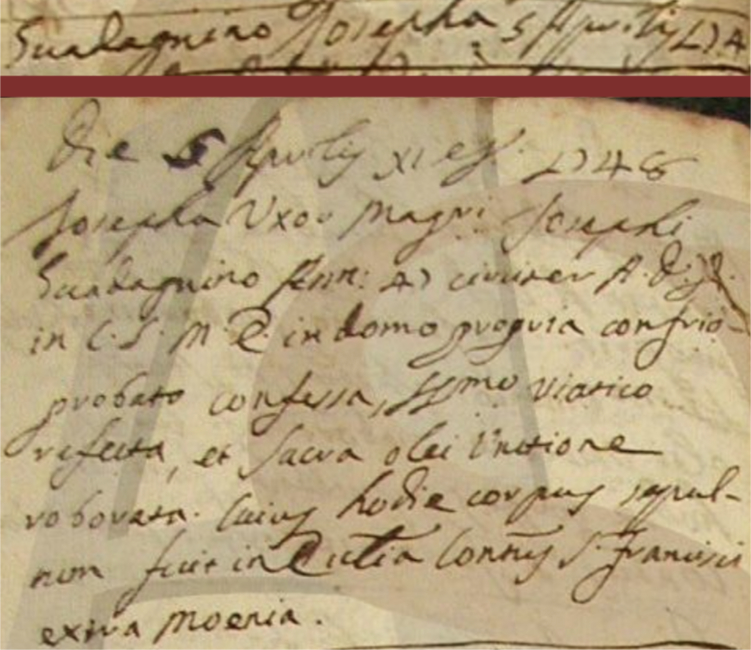 Guadagnino Josepha 5 Aprilis 174
Die 5 Aprilis XI ej. 1748
Josepha Uxor Magri Josephi
Guadagnino Ann: 47 circiter A. D. J. R.
in C. S. M. E. in domo propria confrio
probato confessa, SSmo viatico
refecta, et Sacra olei Unctione
roborata. Cuius hodie corpus sepul-
tum fuit in Ecclia Conntus S. Francisci
extra moenia.